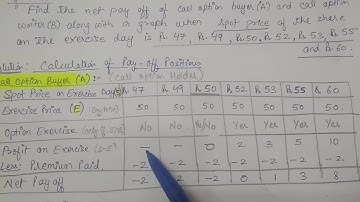 Find the net pay off of call option buyer (A) and call
option writer (B) along with a graph when Spot Price of the share
on the exercise day is Rs. 47, Rs. 49, Rs. 50, Rs. 52, Rs. 53, Rs. 55
and Rs. 60.
Calculation of Pay-off Positions
Call Option Buyer (A):- (Call option Holder)
Spot Price on Exercise Day Rs. 47 Rs. 49 Rs. 50 Rs. 52 Rs. 53 Rs. 55 Rs. 60
Exercise Price (E) 50 50 50 50 50 50 50
Option Exercise (only if S>E) No No Yes/No Yes Yes Yes Yes
Profit on Exercise (S-E) — — 0 2 3 5 10
Less: Premium Paid -2 -2 -2 -2 -2 -2 -2
Net Pay off -2 -2 -2 0 1 3 8